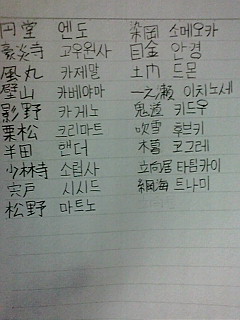 円堂 엔도
豪炎寺 고우원사
風丸 카제말
壁山 카베야마
影野 카게노
栗松 크리마트
半田 핸더
少林寺 소림사
宍戸 시시드
松野 마트노
染岡 소메우카
目金 안경
土門 드몬
一之瀬 이치노세
鬼道 키드우
吹雪 후브키
木暮 코그레
立向居 타팀카이
綱海 트나미